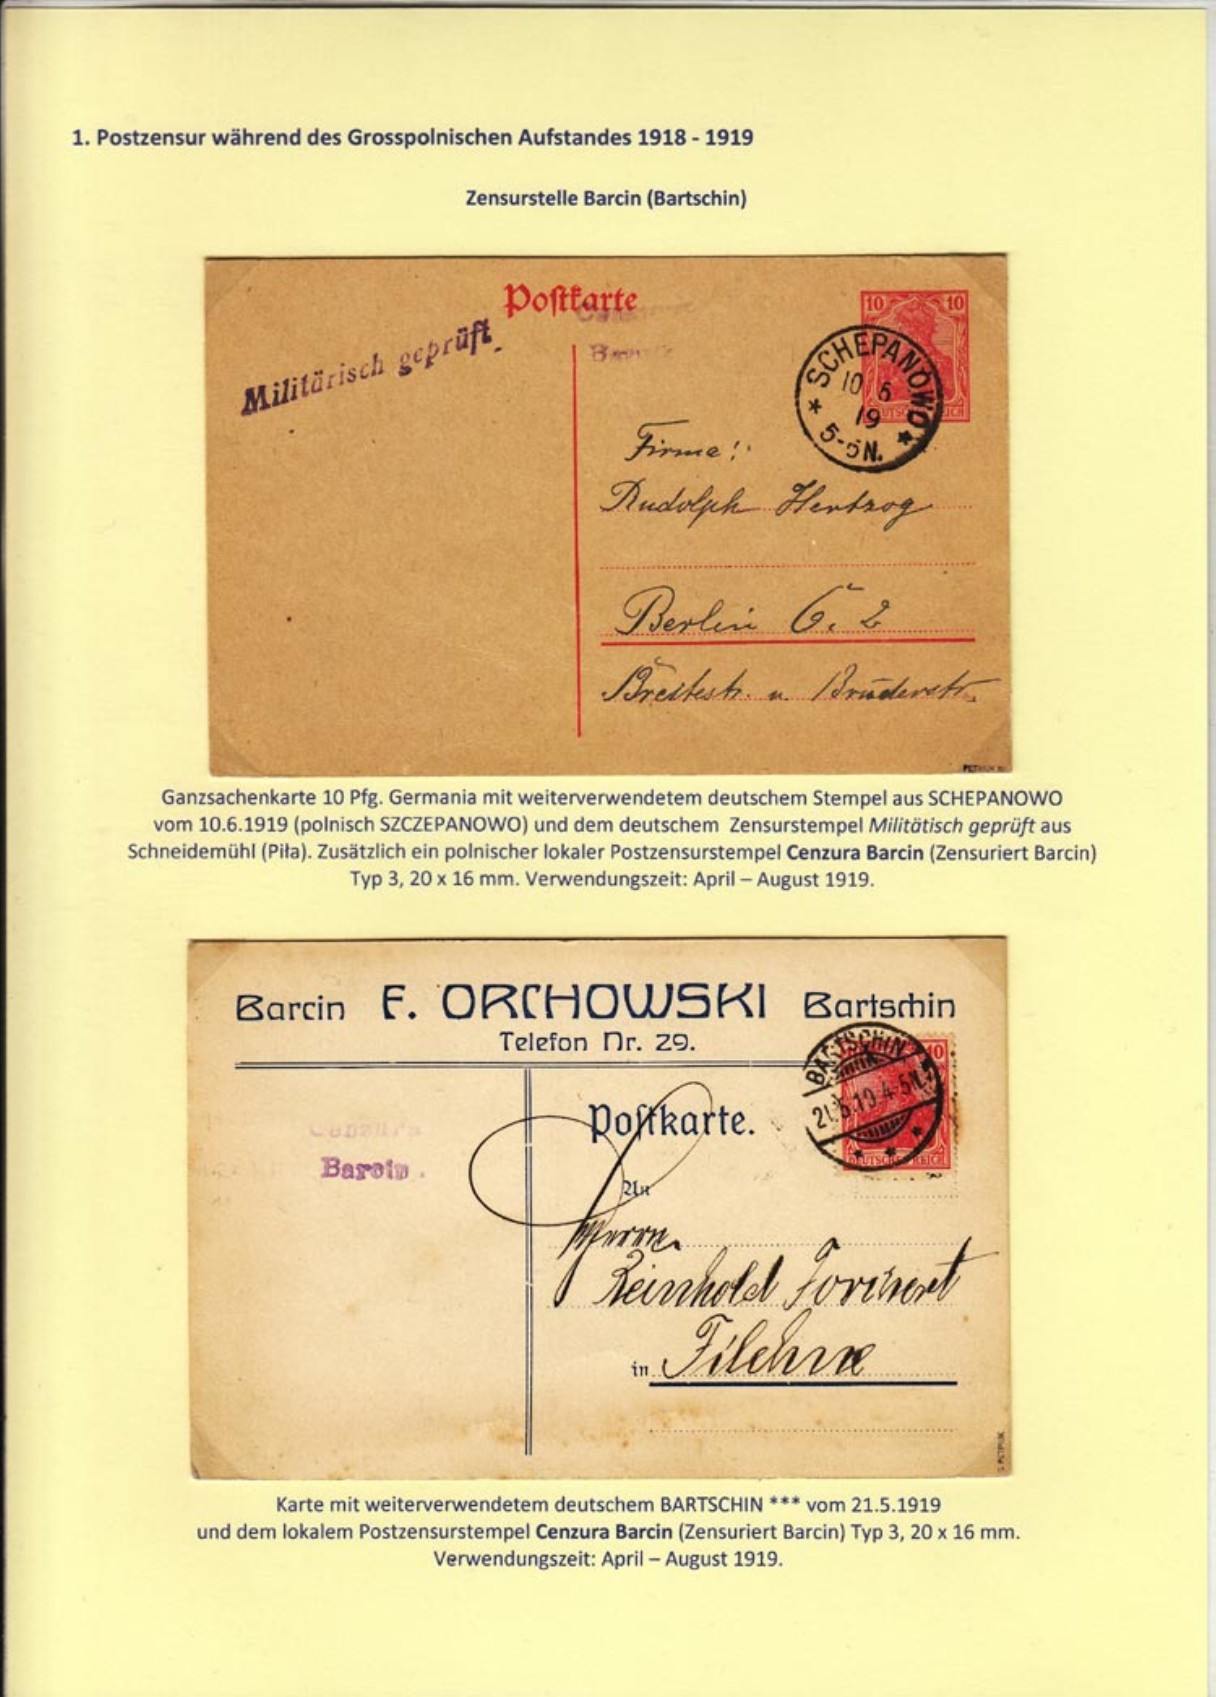 1. Postzensur während des Grosspolnischen Aufstandes 1918 - 1919
Zensurstelle Barcin (Bartschin)
Postkarte
10 10
Militärisch geprüft
SCHEPANOWO
10 6
19
5-6N.
Firma:
Rudolph Hertzog
Berlin C. 2
Breitestr. u. Brüderstr.
Ganzsachenkarte 10 Pfg. Germania mit weiterverwendetem deutschem Stempel aus SCHEPANOWO
vom 10.6.1919 (polnisch SZCZEPANOWO) und dem deutschem Zensurstempel Militätisch geprüft aus
Schneidemühl (Piła). Zusätzlich ein polnischer lokaler Postzensurstempel Cenzura Barcin (Zensuriert Barcin)
Typ 3, 20 x 16 mm. Verwendungszeit: April – August 1919.
Barcin F. ORCHOWSKI Bartschin
Telefon Nr. 29.
BARTSCHIN
10
21.5.19.4-5N.
DEUTSCHES REICH
Postkarte.
Cenzura
Barcin.
An
Herrn
Reinhold
in Filehne
Karte mit weiterverwendetem deutschem BARTSCHIN *** vom 21.5.1919
und dem lokalem Postzensurstempel Cenzura Barcin (Zensuriert Barcin) Typ 3, 20 x 16 mm.
Verwendungszeit: April – August 1919.